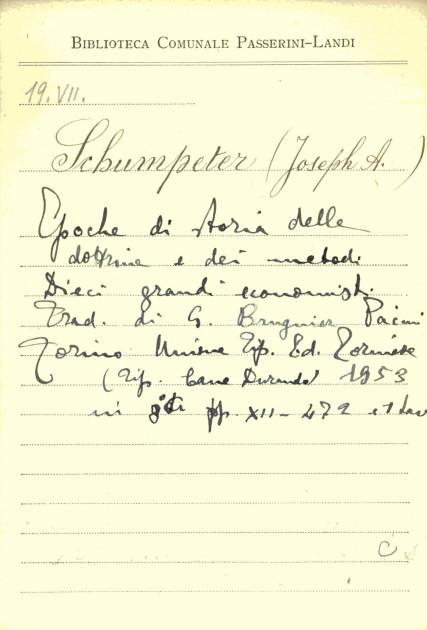 BIBLIOTECA COMUNALE PASSERINI-LANDI
19.VII.
Schumpeter (Joseph A.)
Epoche di storia delle
dottrine e dei metodi.
Dieci grandi economisti.
Trad. di G. Bruguier Pacini
Torino Unione Tip. Ed. Torinese
(Tip. Cane Durando) 1953
in pp. XII-472 e 1 tav
C